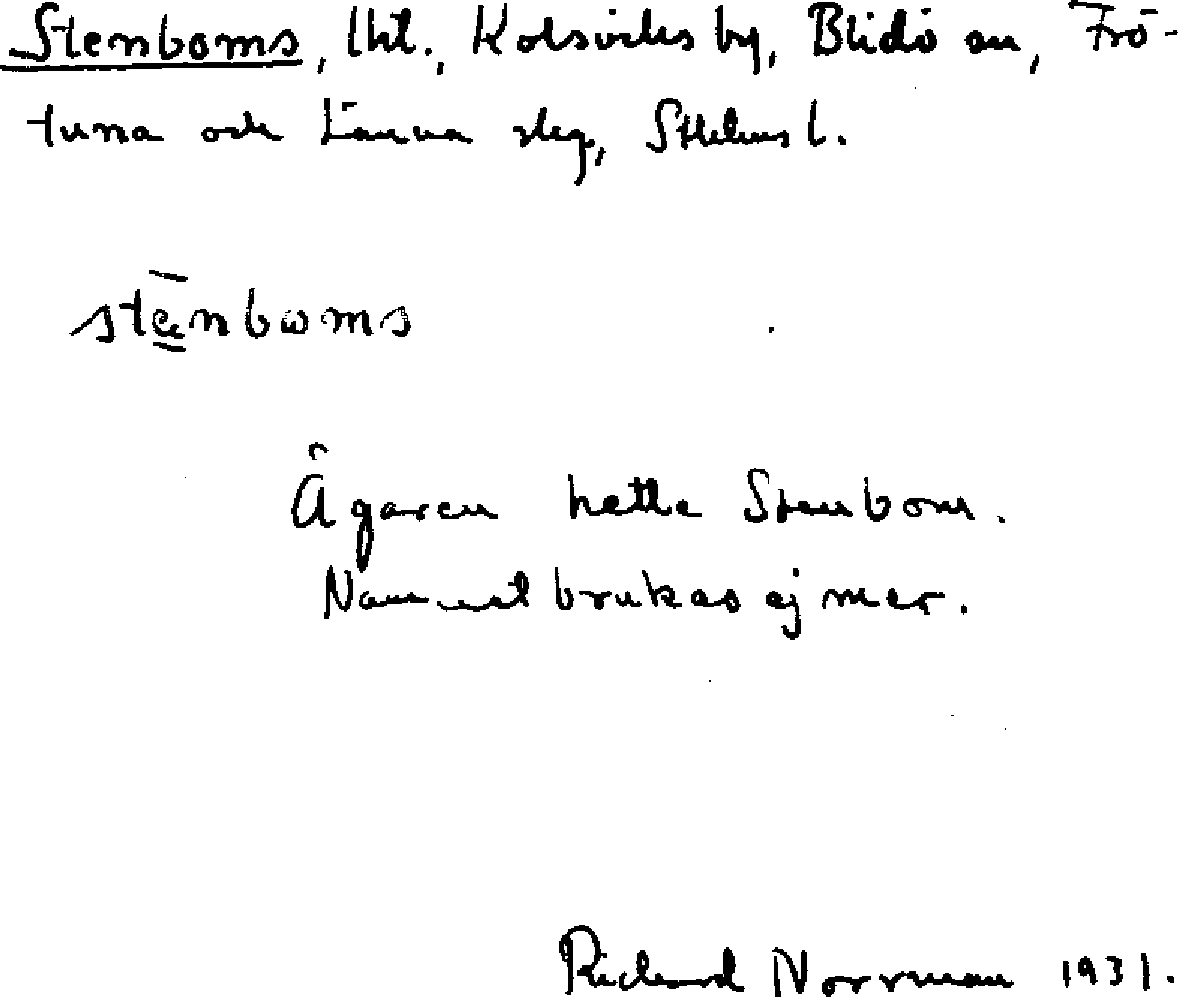 Stenboms, lht., Kolsviks by, Blidö sn, Frö-
tuna och Länna slg, Sthlms l.
stēnboms
Ägaren hette Stenbom.
Namnet brukas ej mer.
Richard Norrman 1931.